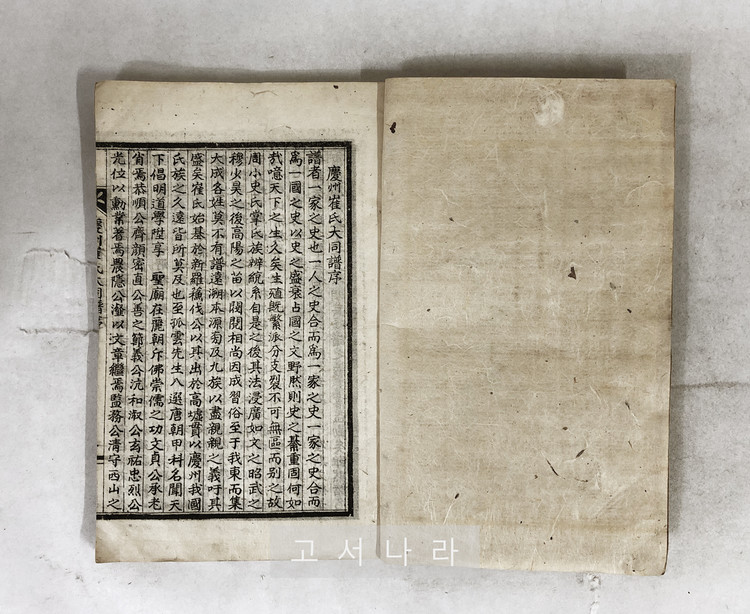 慶州崔氏大同譜序
譜者一家之史也一人之史合而爲一家之史一家之史合而
爲一國之史以史之盛衰占國之文野然則史之綦重固何如
哉噫天下之生久矣生殖旣繁派分支裂不可無區而別之故
周小史氏掌氏族辨統系自是之後其法浸廣如文之昭武之
穆火昊之後高陽之苗以閥閱相尚因成習俗至于我東而集
大成各姓莫不有譜遠溯本源旁及九族以盡親親之義吁其
盛矣崔氏始基於新羅伐公以其出於高墟貫以慶州我國
氏族之久遠皆所莫及也至孤雲先生入選唐朝甲科名聞天
下倡明道學陞享 聖廟在麗朝斥佛崇儒之功文貞公承老
肖焉恭順公齊顔密直公善之節義公沆和淑公玄祐忠烈公
光位以勳業著焉農隱公瀣以文章繼焉監務公淸守西山之
慶州崔氏大同譜序
고서나라